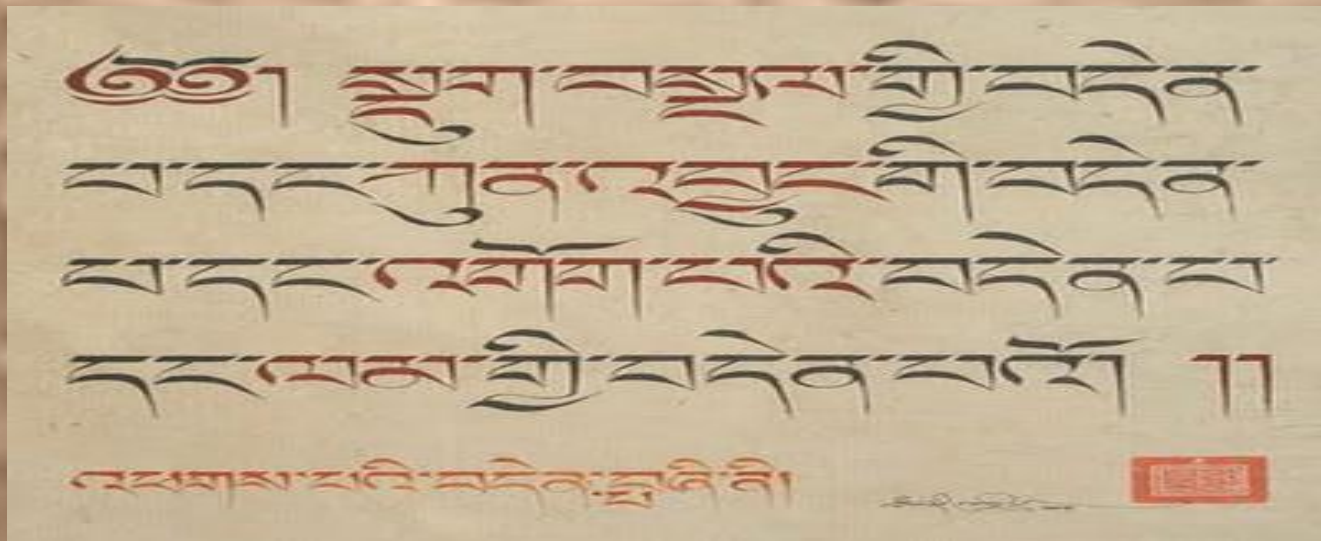 ༄༅། སྡུག་བསྔལ་གྱི་བདེན་
པ་དང་ཀུན་འབྱུང་གི་བདེན་
པ་དང་འགོག་པའི་བདེན་པ་
དང་ལམ་གྱི་བདེན་པའོ །།
འཕགས་པའི་བདེན་བཞི་ནི།